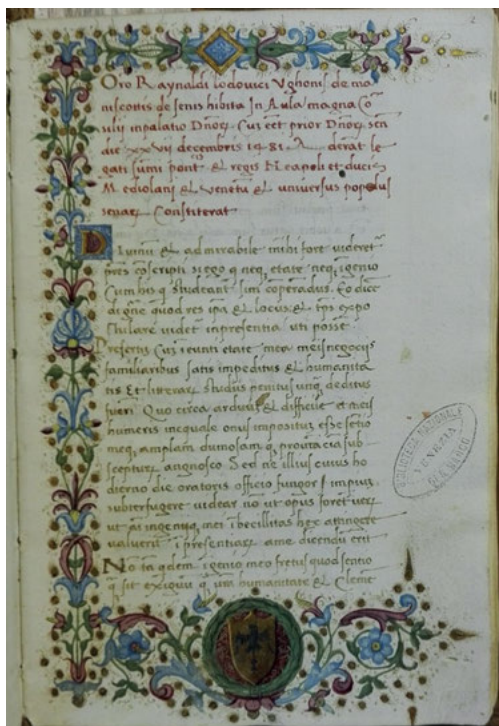 Oro Raynaldi lodovici Vghonis de ma
niscottis de senis hibita In Aula magna Cō
silii in palatio Dnoꝝ Cuȝ eēt prior Dnoꝝ sen
die xxvii decembris 1481 Aderat le
gati sumi pontis & regis Neapoli et ducis
Mediolani & venetū & universus populus
senaꝝ Constiterat
Diuinū & admirabile mihi fore videret
pres cōscripti si ego q neq etate neq igenio
Cum his q studeant sim cōperādus Eo dicē
di gñe quod res ipa & locus & tps expo
stulare videt inpresentia uti posse
Presertiȝ Cuȝ ieunti etate mea meis negociis
familiaribus satis impeditus & humanita
tis Et litteraꝝ studiis penitus unq deditus
fueri Quo circa arduū & difficile et meis
humeris inequale onus impositūȝ esse sētio
meq amplam dumosam q prouīciā sub
scepturȝ angnosco Sed ne illius cuius ho
dierno die oratoris officio fungor impiuȝ
subterfugere uidear nō ut opus foret ueꝝ
ut ingeniiq mei ibecillitas hec attingere
valuerit i presentiaꝝ a me dicendū erit
Nō tā qdem igenio meo fretus quod sentio
q sit exiguū q ura humanitate & Cleme
BIBLIOTECA NAZIONALE
VENEZIA
S. MARCO